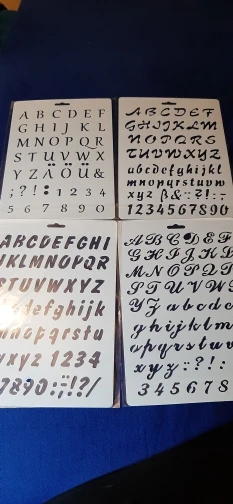 A B C D E F
G H I J K L
M N O P Q R
S T U V W X
Y Z Ä Ö Ü &
; ? ! : 1 2 3 4
5 6 7 8 9 0
A B C D E F
G H I J K L M
N O P Q R S
T U V W X Y Z
a b c d e f g h i j k l
m n o p q r s t u v w
x y z ß & : ? ! ;
1 2 3 4 5 6 7 8 9 0
A B C D E F G H I
J K L M N O P Q R
S T U V W X Y Z
d e f g h i j k
m n o p q r s t u
v x y z 1 2 3 4
7 8 9 0 : ; ! ? /
A B C D E F
G H I J K L
M N O P Q R
S T U V W
Y Z a b c d e
g h i j k l m
o p q r s t u v
x y z : ? ! :
3 4 5 6 7 8